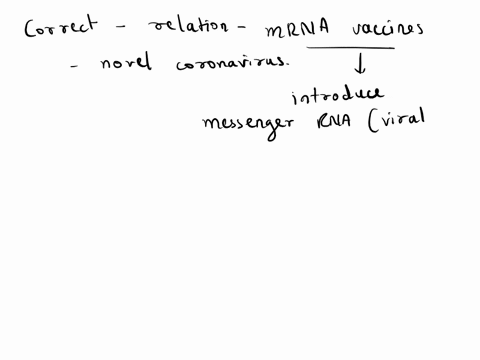 Correct - relation - mRNA vaccines
- novel coronavirus.
↓
introduce
messenger RNA (viral